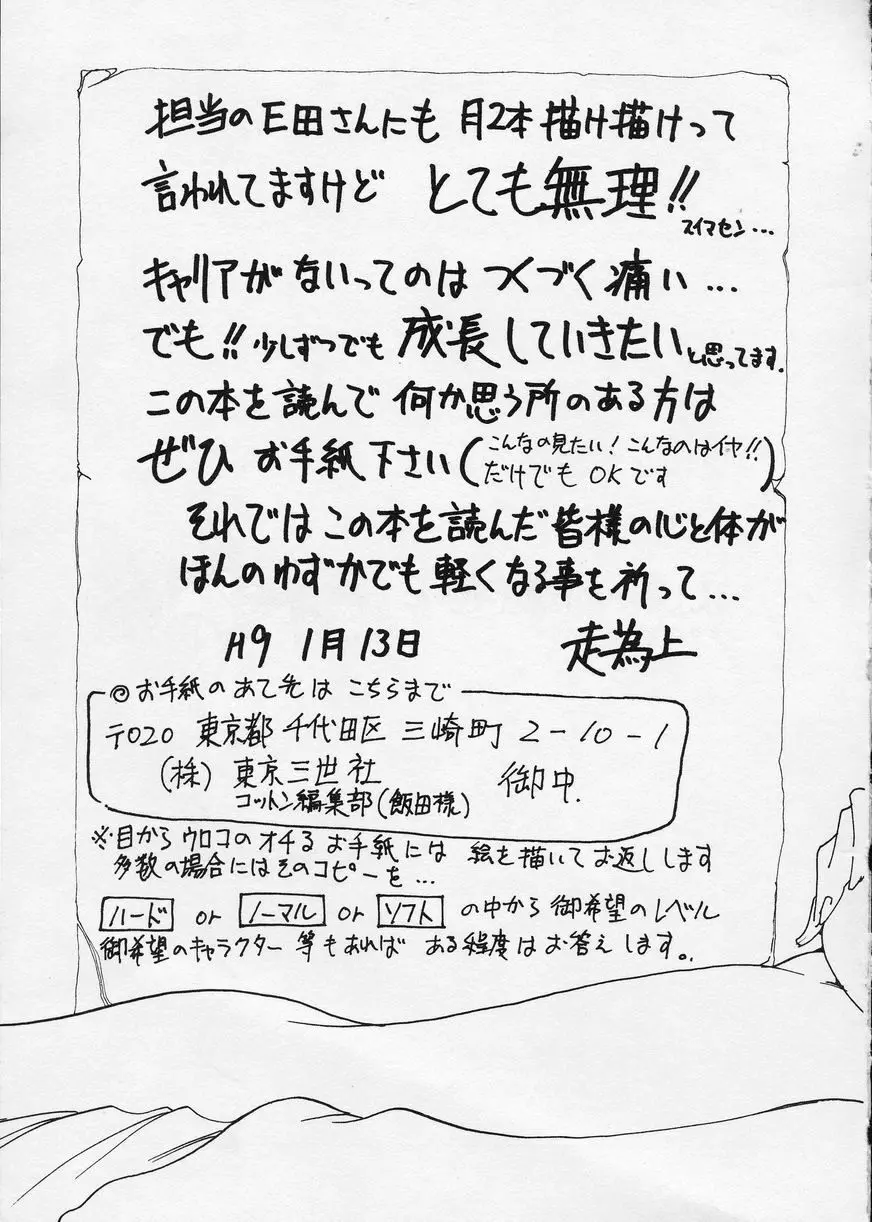 担当のE田さんにも 月2本描け描けって
言われてますけど とても無理!!
スイマセン...
キャリアがないってのは つくづく痛い...
でも!! 少しずつでも 成長していきたいと思ってます.
この本を読んで 何か思う所のある方は
ぜひ お手紙下さい(こんなの見たい! こんなのはイヤ!!
だけでも OKです)
それでは この本を読んだ皆様の心と体が
ほんのわずかでも 軽くなる事を祈って...
H9 1月13日 走為上
◎お手紙の あて先は こちらまで
〒020 東京都 千代田区 三崎町 2-10-1
(株) 東京三世社 御中.
コットン編集部(飯田様)
※目から ウロコの オチる お手紙には 絵を描いて お返しします
多数の場合にはそのコピーを...
ハード or ノーマル or ソフト の中から 御希望のレベル
御希望のキャラクター 等もあれば ある程度は お答えします。